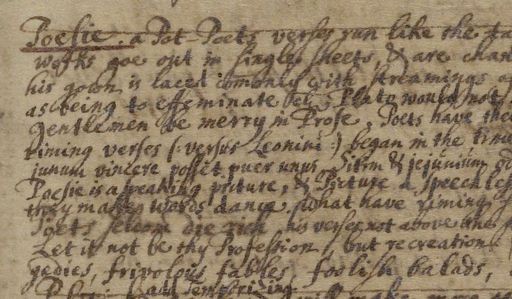 Poesie. a Pot Poets verses run like the Ta
works goe out in single sheets, & are chan
his gown is laced comonly with streamings o
as being to effeminate Plato would not
Gentlemen be merry in Prose, Poets have the
riming verses (: versus Leonini :) began in the time
unum vincere posset puer unus & jejunium
Poesie is a speaking picture, & Picture a speechles
they makes words dance, what have riming
Poets seldom die rich, his verses not above the
Let it not be thy Profession, but recreation
gedies, frivolous fables, foolish balads,
and